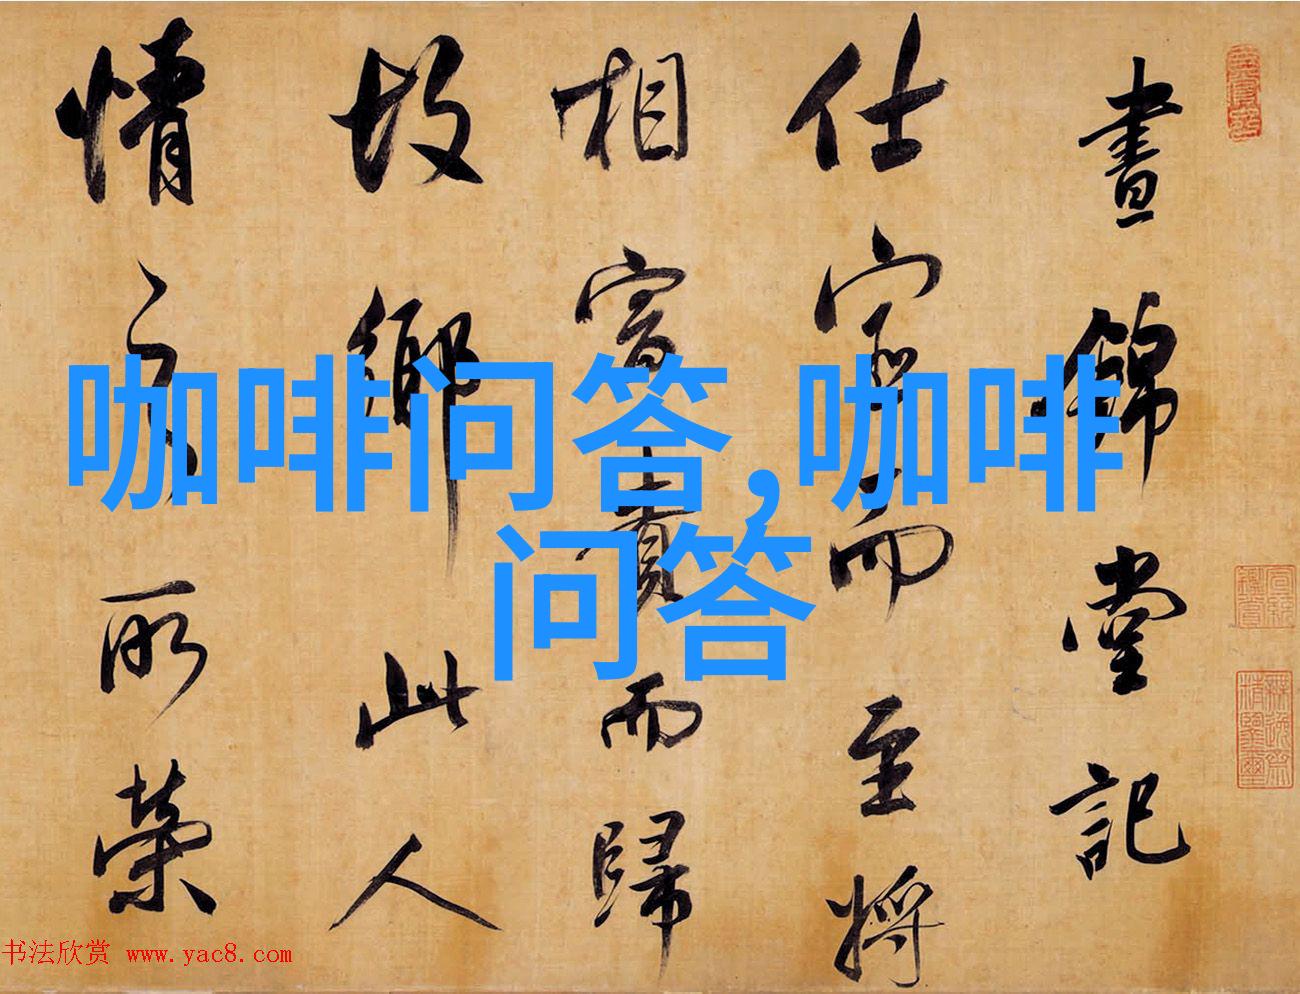 晝錦堂記
仕宦而至將
相富貴而歸
故鄉此人
情之所榮
咖啡问答,咖啡
问答
书法欣赏 www.yac8.com